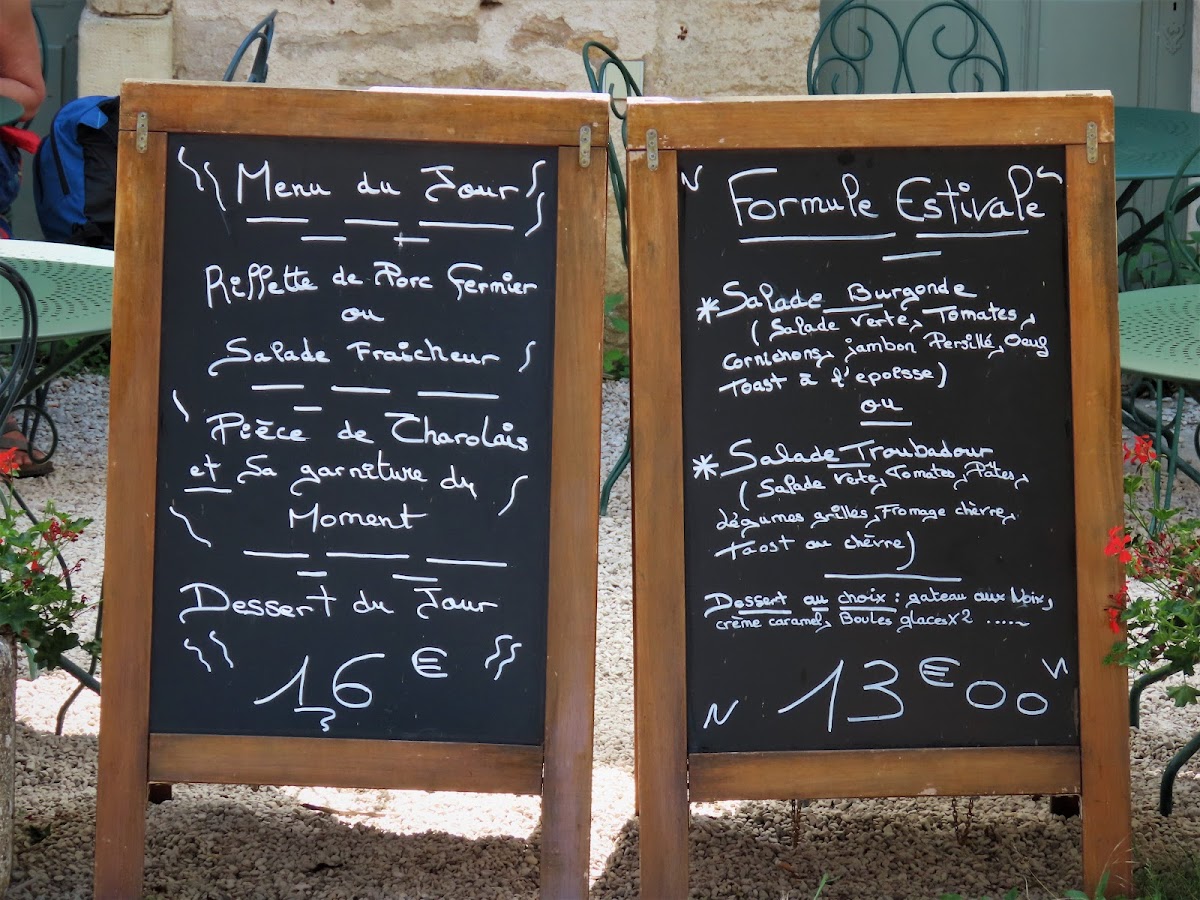 Menu du Jour
Riffette de Porc Fermier
ou
Salade Fraicheur
Pièce de Charolais
et sa garniture du
Moment
Dessert du Jour
16 €
Formule Estivale
* Salade Burgonde
( Salade verte, Tomates,
Cornichons, jambon Persillé, Oeuf
Toast à l'epoisse)
ou
* Salade Troubadour
( Salade verte, Tomates, Pâtes,
légumes grilles, Fromage chèvre,
Taost au chèvre)
Dessert au choix : gateau aux Noix,
crème caramel, Boules glacés x2 ......
13 € 00